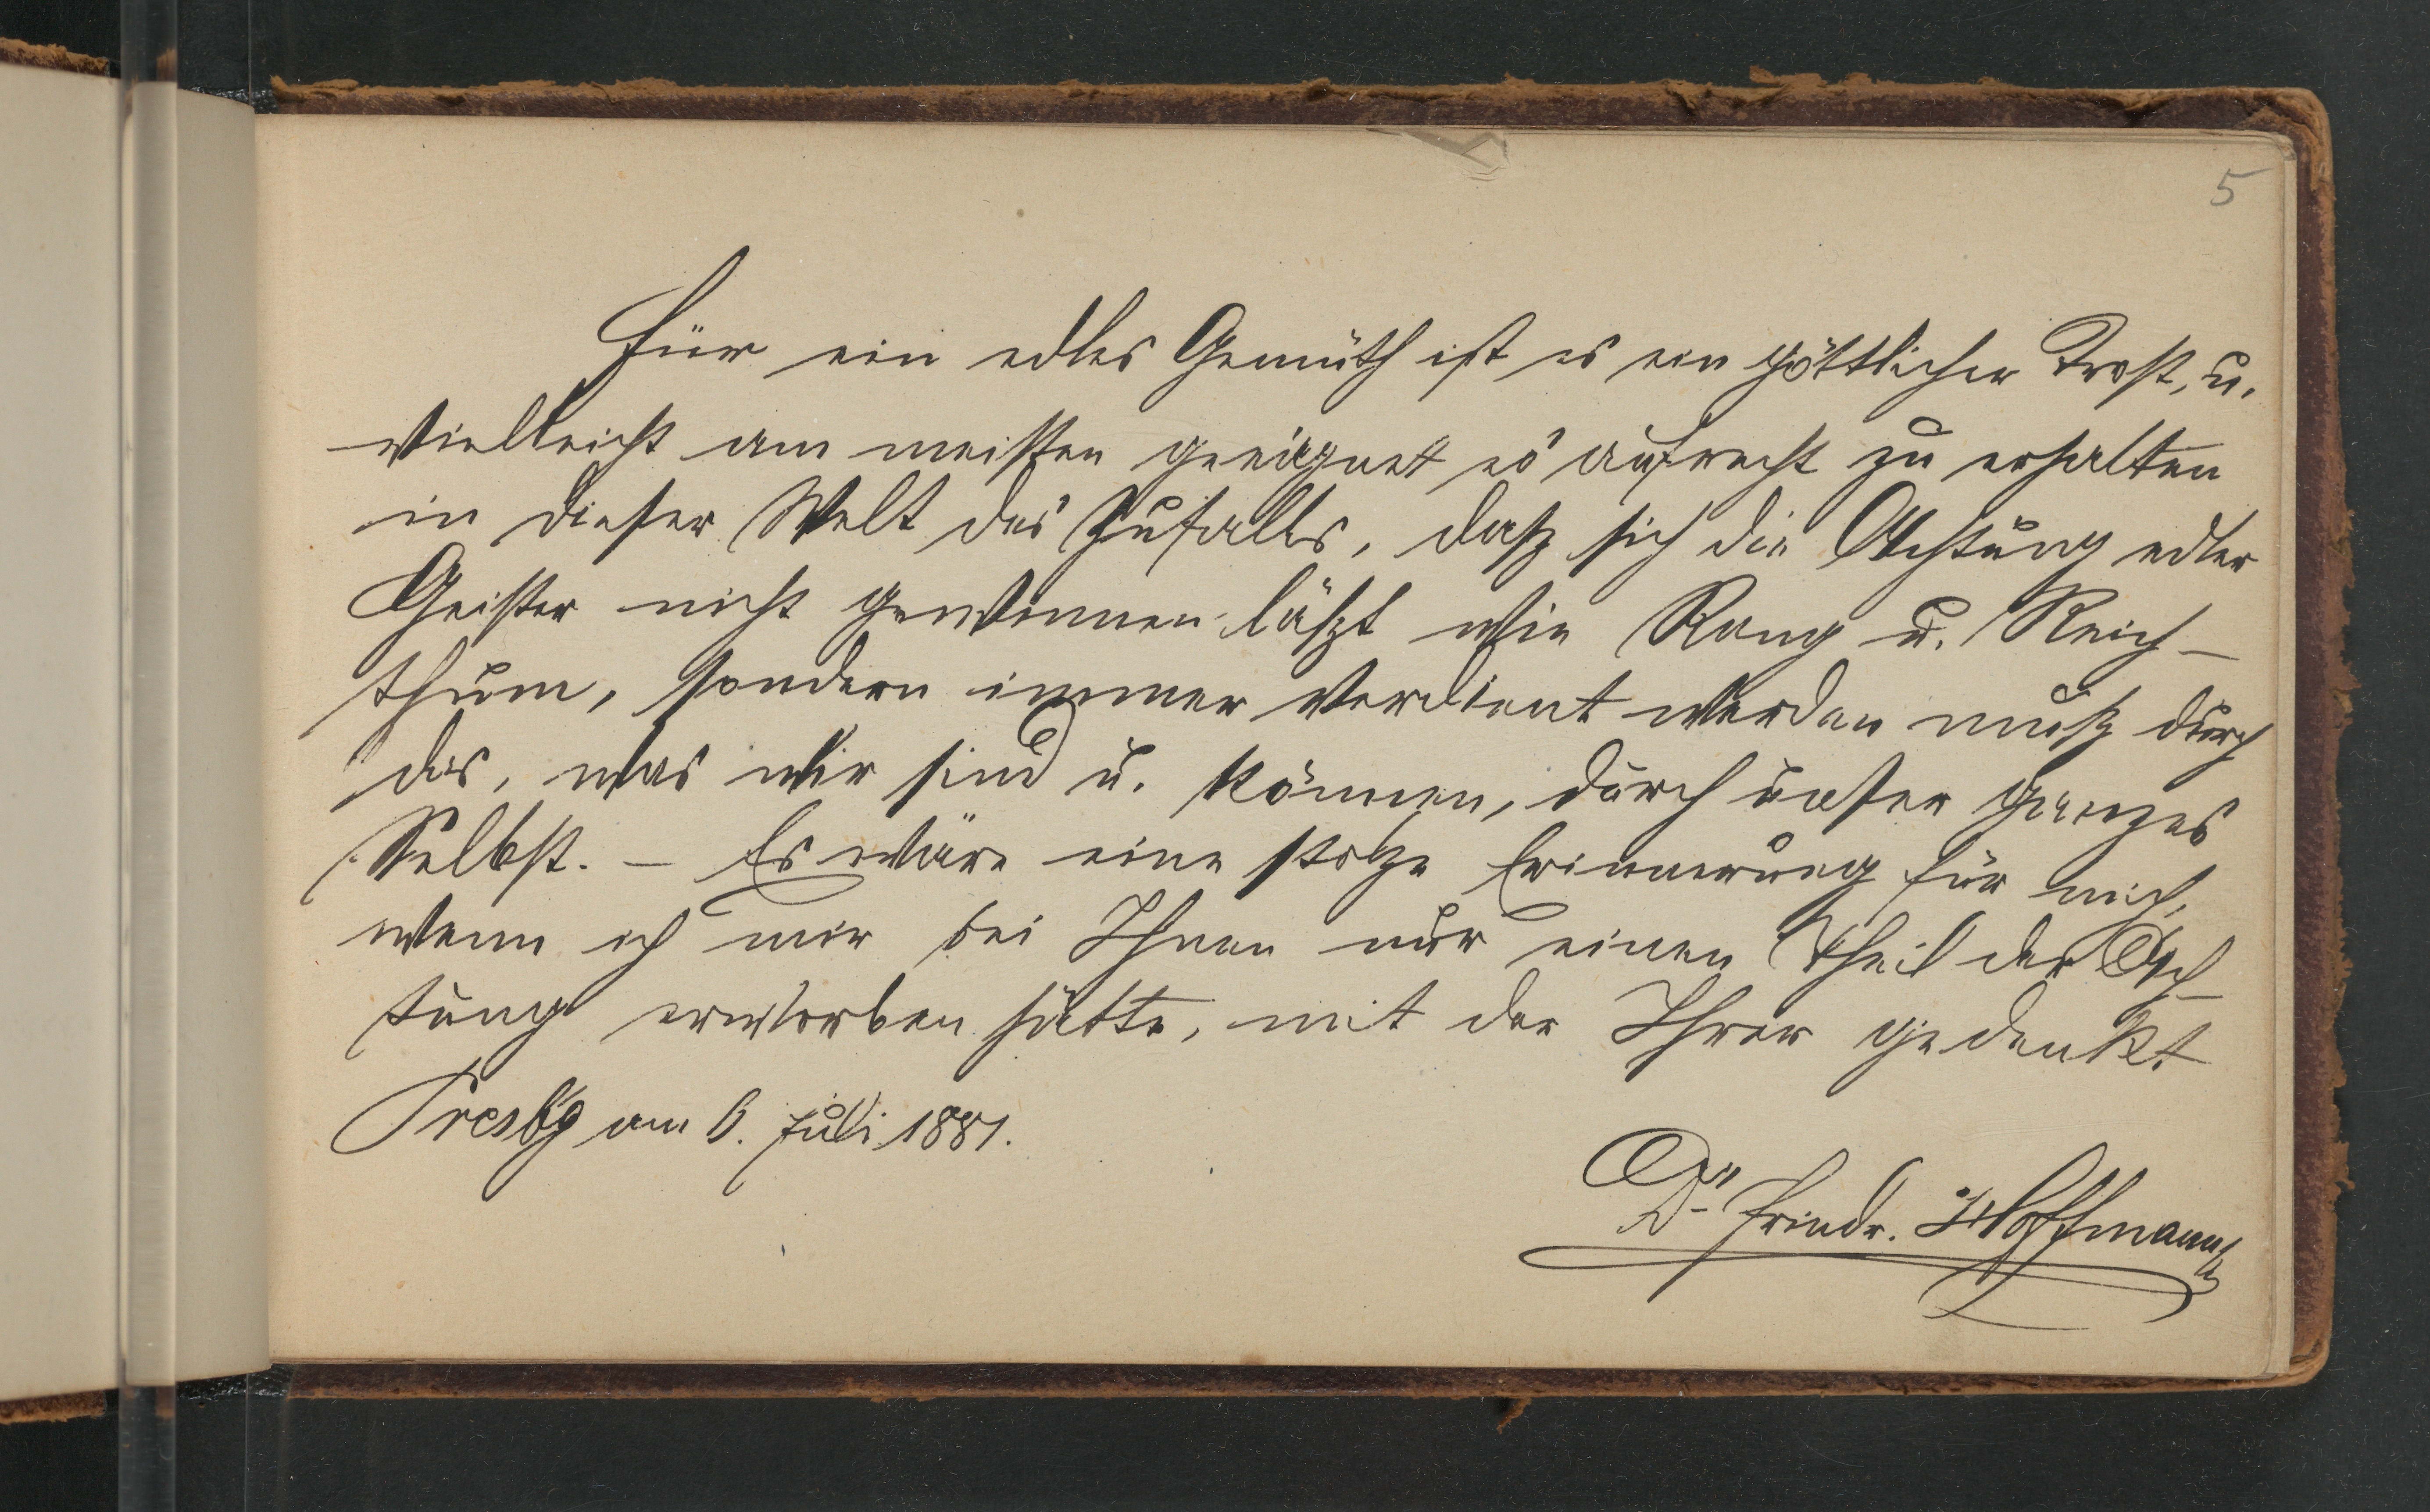 5
Für ein edles Gemüth ist es ein göttlicher Trost, u.
vielleicht am meisten geeignet es aufrecht zu erhalten
in dieser Welt des Zufalls, dasz sich die Achtung edler
Geister nicht gewinnen läszt wie Rang u. Reich-
thum, sondern immer verdient werden musz durch
das, was wir sind u. können, durch unser ganzes
Selbst. – Es wäre eine stolze Erinnerung für mich,
wenn ich mir bei Ihnen nur einen Theil der Ach-
tung erworben hätte, mit der Ihrer gedenkt
Presbg am 6. Juli 1881.
Dr Friedr. Hoffmann